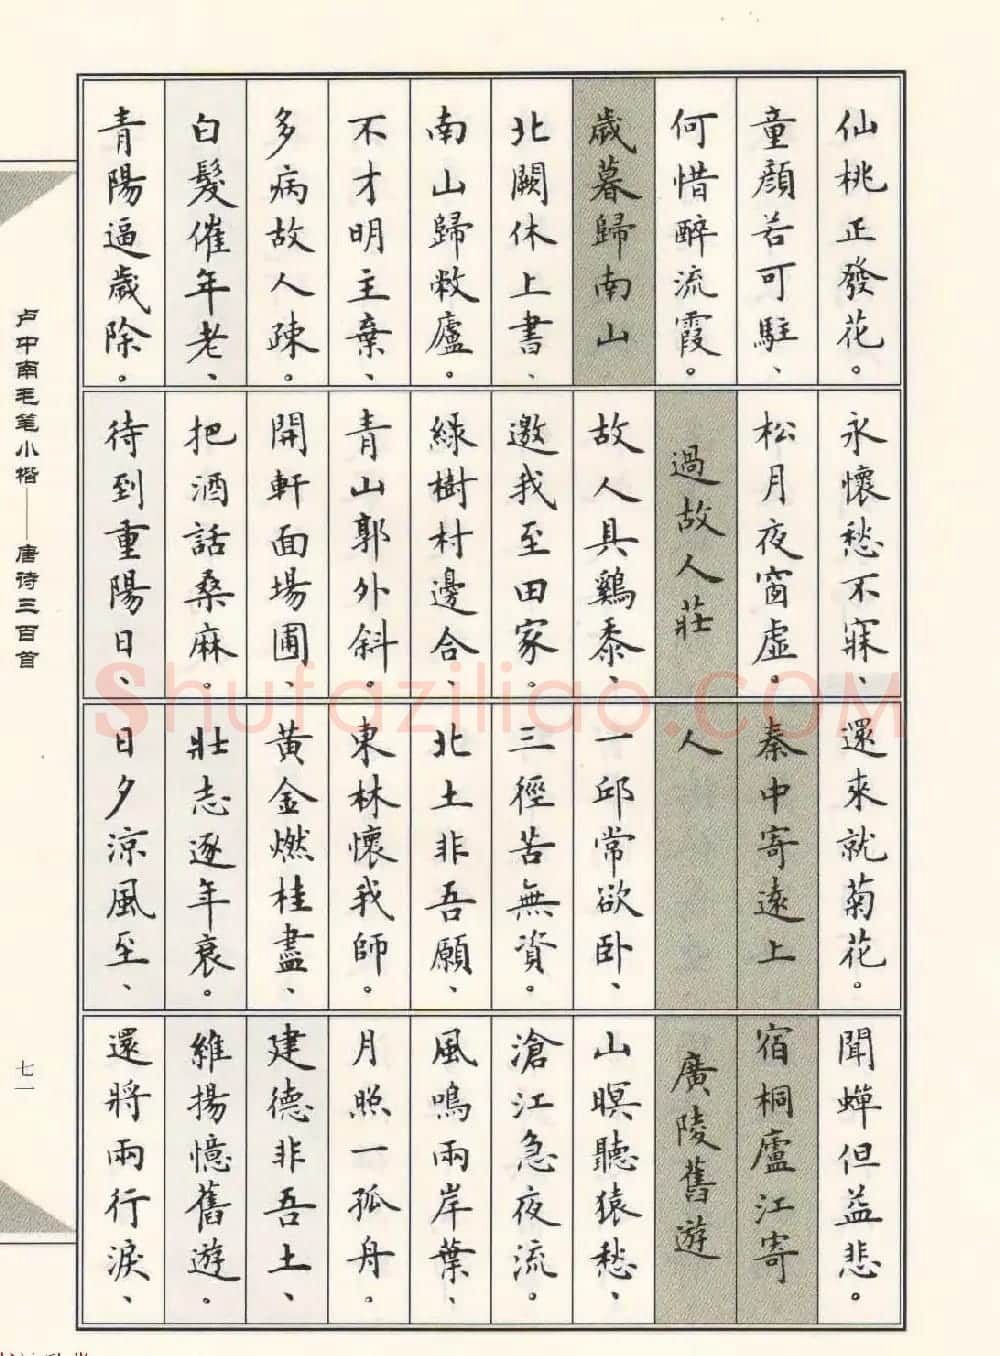 仙桃正發花。
童顏若可駐、
何惜醉流霞。
歲暮歸南山
北闕休上書、
南山歸敝廬。
不才明主棄、
多病故人疎。
白髮催年老、
青陽逼歲除。
永懷愁不寐、
松月夜窗虛。
過故人莊
故人具鷄黍、
邀我至田家。
綠樹村邊合、
青山郭外斜。
開軒面場圃、
把酒話桑麻。
待到重陽日、
還來就菊花。
秦中寄遠上
人
一邱常欲卧、
三徑苦無資。
北土非吾願、
東林懷我師。
黃金燃桂盡、
壯志逐年衰。
日夕涼風至、
聞蟬但益悲。
宿桐廬江寄
廣陵舊遊
山暝聽猿愁、
滄江急夜流。
風鳴兩岸葉、
月照一孤舟。
建德非吾土、
維揚憶舊遊。
還將兩行淚、
卢中南毛笔小楷——唐诗三百首
七一
Shufaziliao.COM